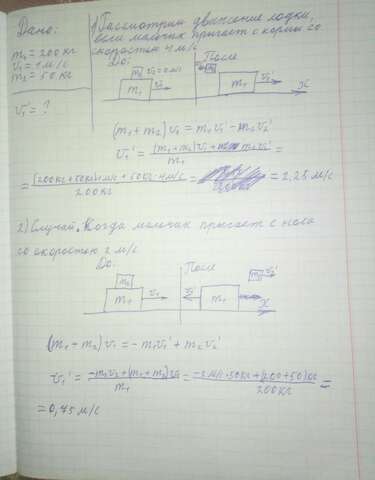 Дано:
m₁ = 200 кг
v₁ = 1 м/с
m₂ = 50 кг
v₁' = ?
1) Рассмотрим движение лодки,
если мальчик прыгает с кормы со
скоростью 4 м/с
До:
После
m₂
v₁
m₁
m₁
v₁'
X
(m₁ + m₂) v₁ = m₁v₁' - m₂v₂'
v₁' = ((m₁ + m₂)v₁ + m₂v₂')/m₁ =
= ((200кг + 50кг) 1 м/с + 50кг · 4 м/с)/200кг = = 2,25 м/с
2) Случай. Когда мальчик прыгает с носа
со скоростью 2 м/с
До:
После
m₂
m₁
v₁
v₁'
m₁
m₂
v₂'
X
(m₁ - m₂) v₁ = -m₁v₁' + m₂v₂'
v₁' = (-m₂v₂ + (m₁ + m₂)v₁)/m₁ = (-2 м/с · 50кг + (200 + 50)кг)/200кг =
= 0,75 м/с